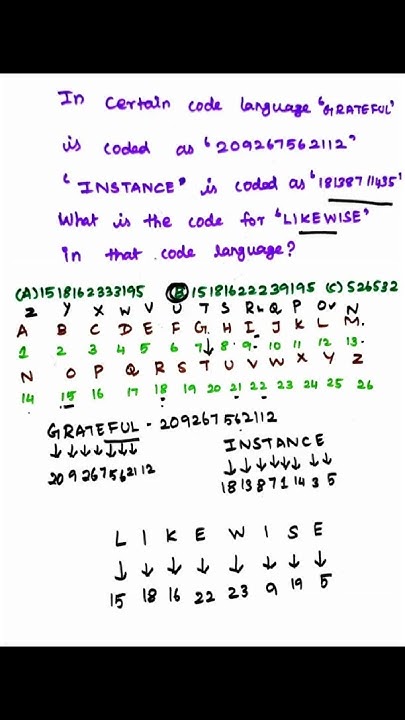 In Certain code language 'GRATEFUL'
is coded as '209267562112'
'INSTANCE' is coded as '1813871 1435'
What is the code for 'LIKEWISE'
in that code language?
(A) 1518162333195 (B) 15181622239195 (C) 526532
Z Y X W V U T S R Q P O N
A B C D E F G H I J K L M
1 2 3 4 5 6 7 8 9 10 11 12 13
N O P Q R S T U V W X Y Z
14 15 16 17 18 19 20 21 22 23 24 25 26
GRATEFUL - 209267562112
↓↓↓↓↓↓↓↓
20 9 26 7 5 6 21 12
INSTANCE
↓↓↓↓↓↓↓↓
18 13 8 7 1 14 3 5
L I K E W I S E
↓ ↓ ↓ ↓ ↓ ↓ ↓ ↓
15 18 16 22 23 9 19 5